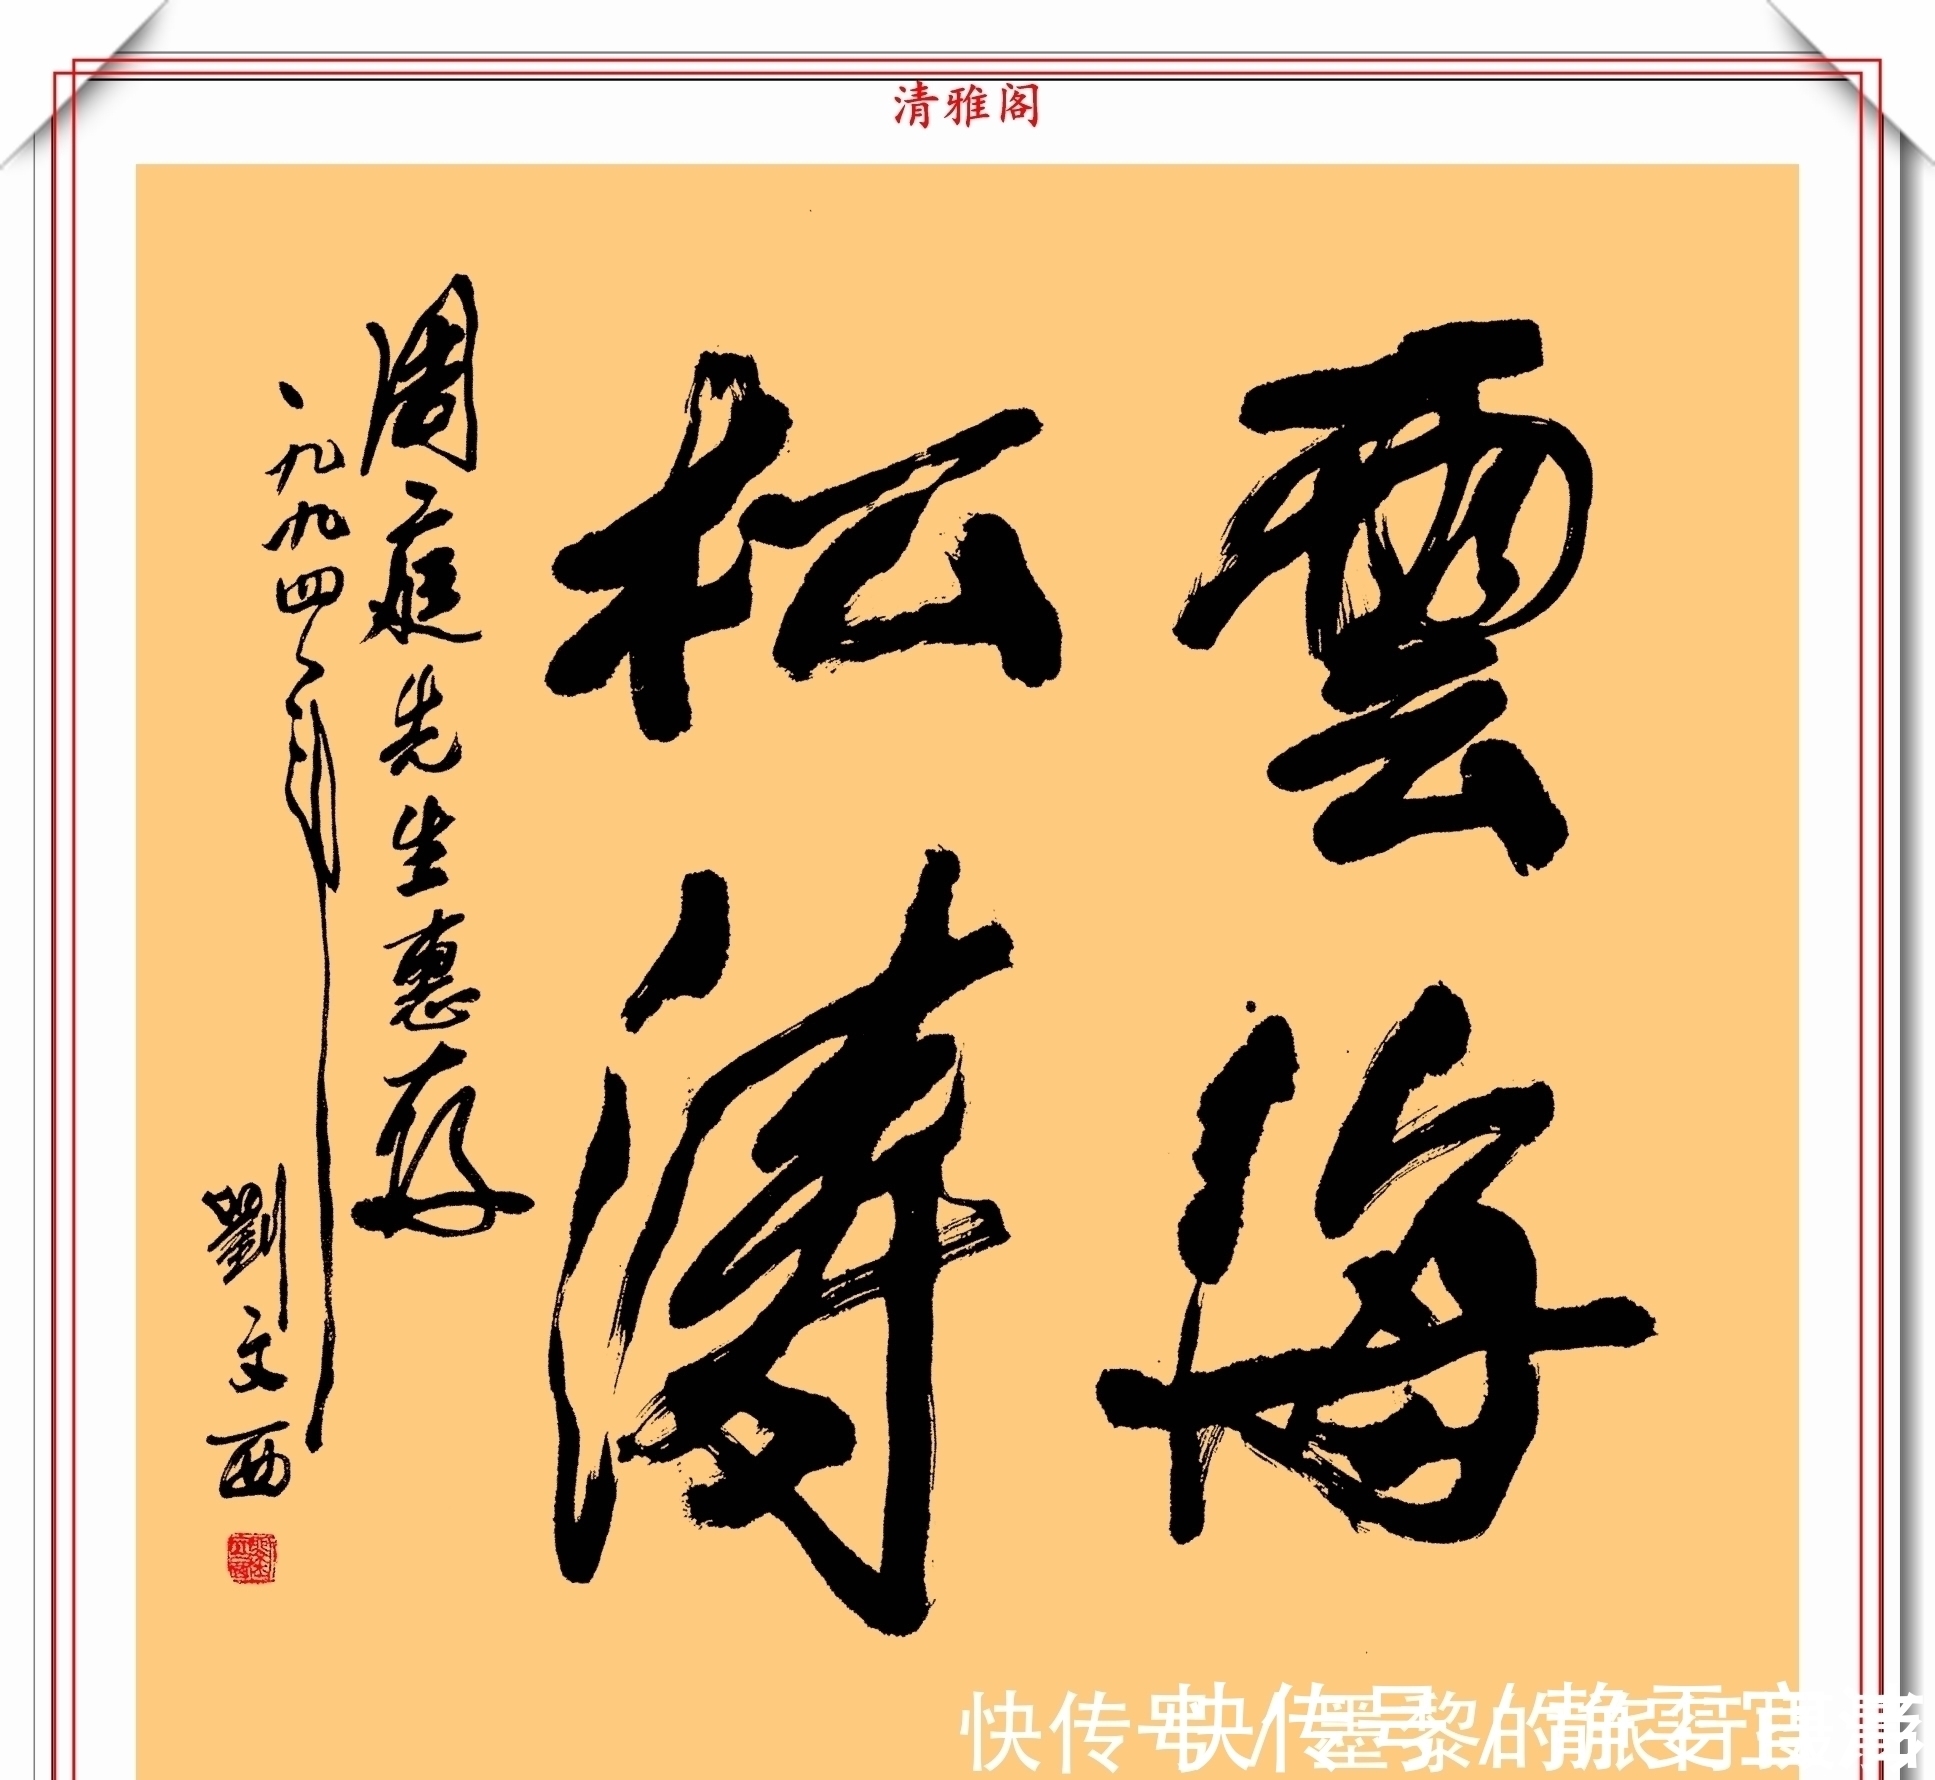 清雅阁
雲海
松濤
周庭先生惠存
一九九四年
劉文西
快传号